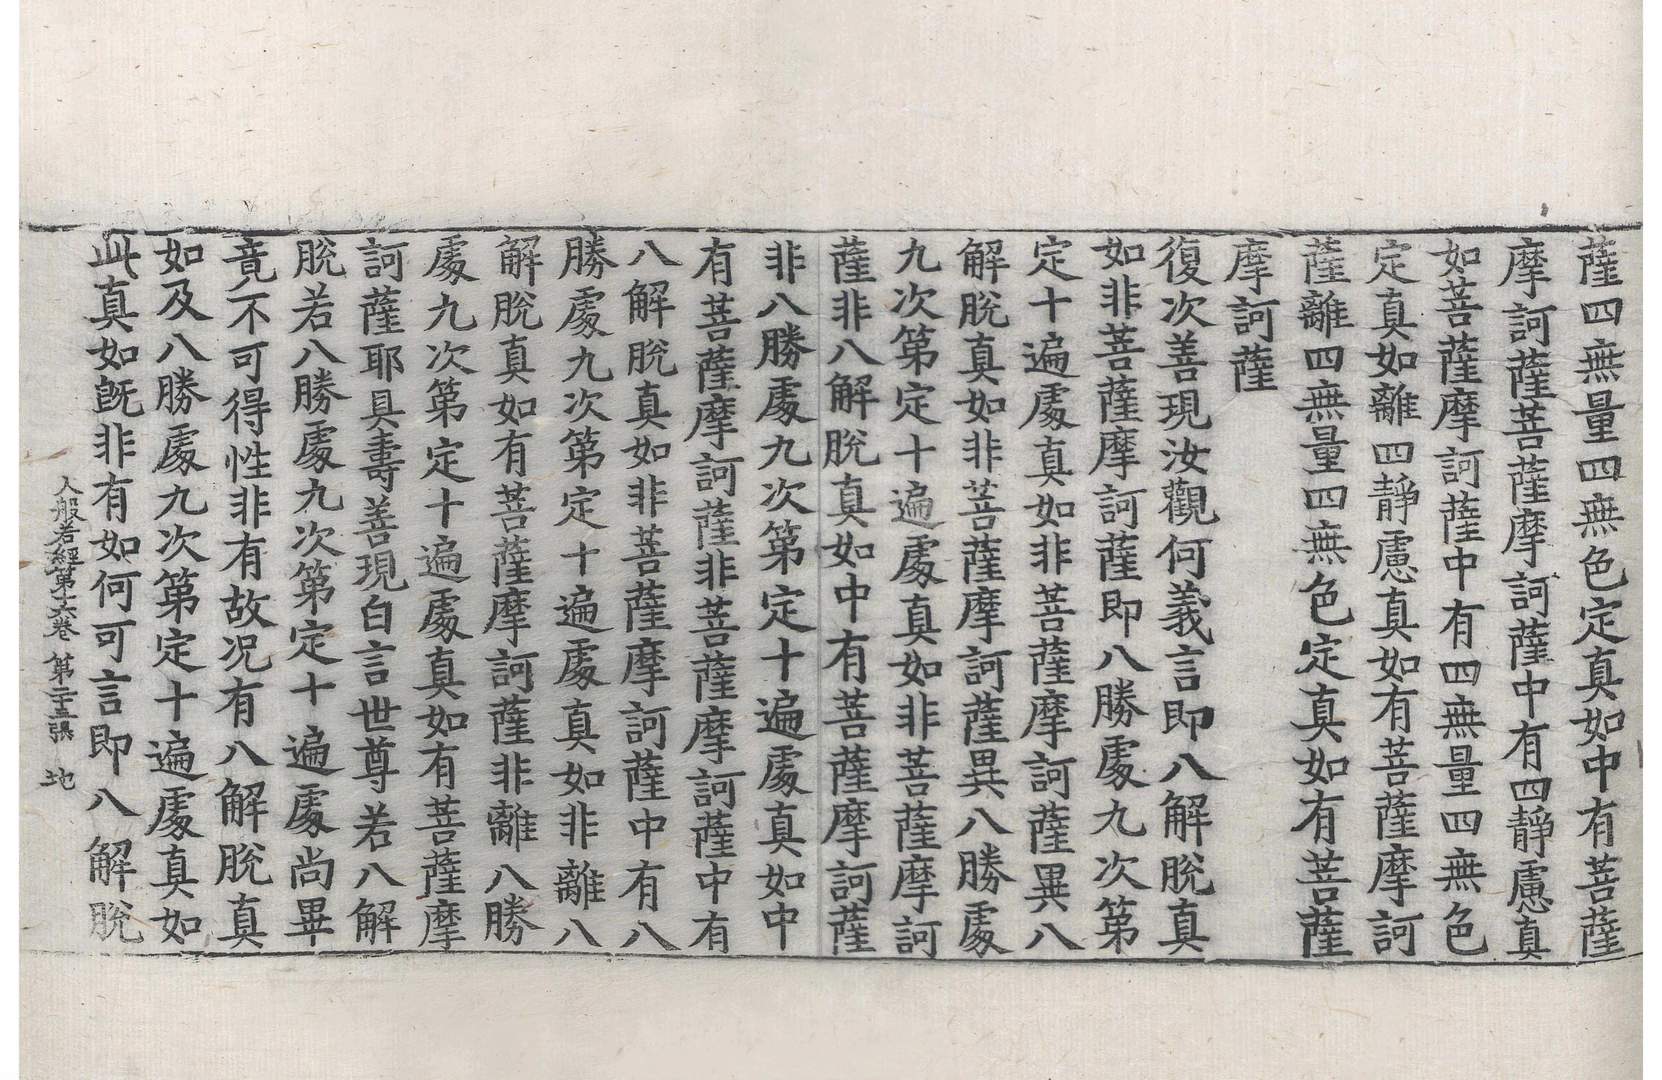 薩四無量四無色定真如中有菩薩
摩訶薩菩薩摩訶薩中有四靜慮真
如菩薩摩訶薩中有四無量四無色
定真如離四靜慮真如有菩薩摩訶
薩離四無量四無色定真如有菩薩
摩訶薩
復次善現汝觀何義言即八解脫真
如非菩薩摩訶薩即八勝處九次第
定十遍處真如非菩薩摩訶薩異八
解脫真如非菩薩摩訶薩異八勝處
九次第定十遍處真如非菩薩摩訶
薩非八解脫真如中有菩薩摩訶薩
非八勝處九次第定十遍處真如中
有菩薩摩訶薩非菩薩摩訶薩中有
八解脫真如非菩薩摩訶薩中有八
勝處九次第定十遍處真如非離八
解脫真如有菩薩摩訶薩非離八勝
處九次第定十遍處真如有菩薩摩
訶薩耶具壽善現白言世尊若八解
脫若八勝處九次第定十遍處尚畢
竟不可得性非有故況有八解脫真
如及八勝處九次第定十遍處真如
此真如既非有如何可言即八解脫
般若經第十六卷 第二十三張 地